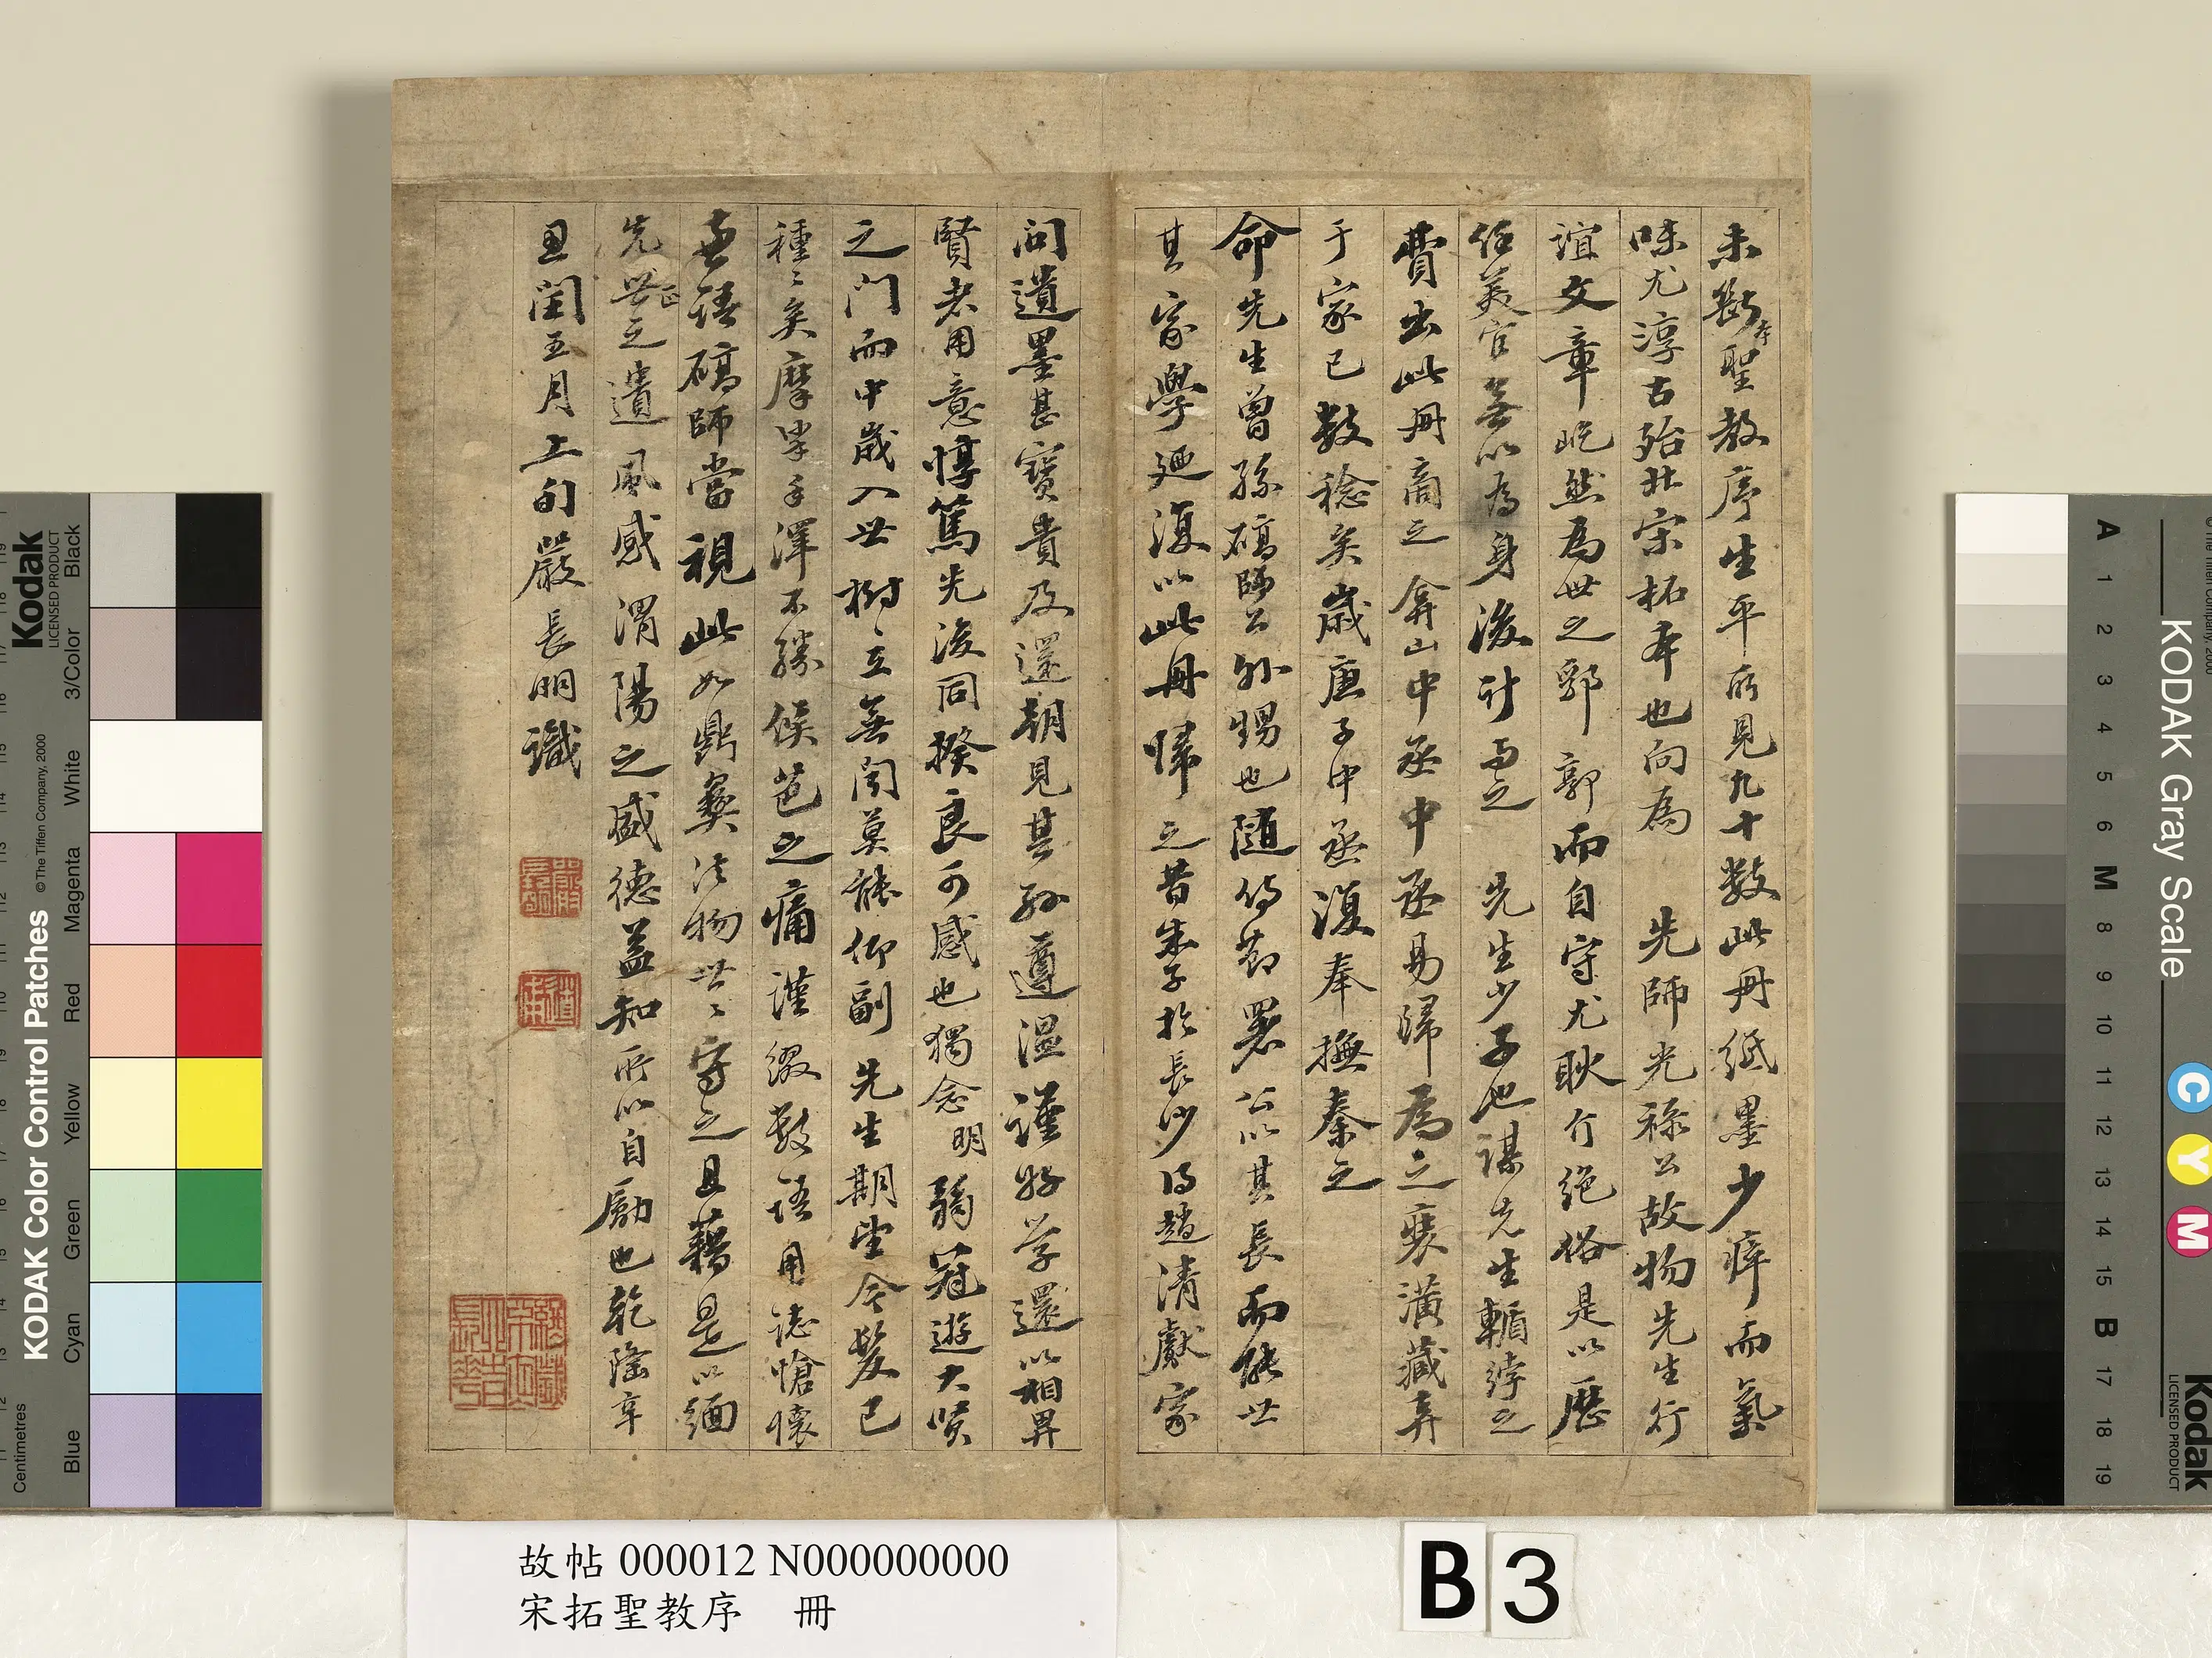 未斷本聖教序生平所見九十數此冊紙墨少瘁而氣
味尤淳古殆北宋拓本也向為 先師光祿公故物先生行
誼文章屹然為世之郛郭而自守尤耿介絕俗是以歷
任美官無以為身後計當之 先生少子也謀先生輴綍之
費出此冊商之弇山中丞中丞易歸為之裝潢藏弆
于家已數稔矣歲庚子中丞復奉撫秦之
命先生曾孫碻師公外甥也隨侍節署公以其長而能世
其家學迺復以此冊歸之昔朱子於長沙得趙清獻家
問遺墨甚寶貴及還朝見其孫遵溫謹好學還以相畀
賢者用意惇篤先後同揆良可感也獨念明弱冠遊大賢
之門而中歲入世樹立無聞莫能仰副 先生期望今髮已
種〻矣摩挲手澤不勝侯芭之痛謹綴數語用誌愴懷
並語碻師當視此如鼎彝法物世〻守之且藉是以緬
先世正之遺風感渭陽之盛德益知所以自勵也乾隆辛
丑閏五月上旬嚴長明識
故帖 000012 N000000000
宋拓聖教序 冊
B 3
KODAK Color Control Patches
©The Tiffen Company, 2000
Kodak
LICENSED PRODUCT
Centimetres
Blue
Cyan
Green
Yellow
Red
Magenta
White
3/Color
Black
KODAK Gray Scale
C
Y
M
Kodak
LICENSED PRODUCT
A 1 2 3 4 5 6 M 8 9 10 11 12 13 14 15 B 17 18 19